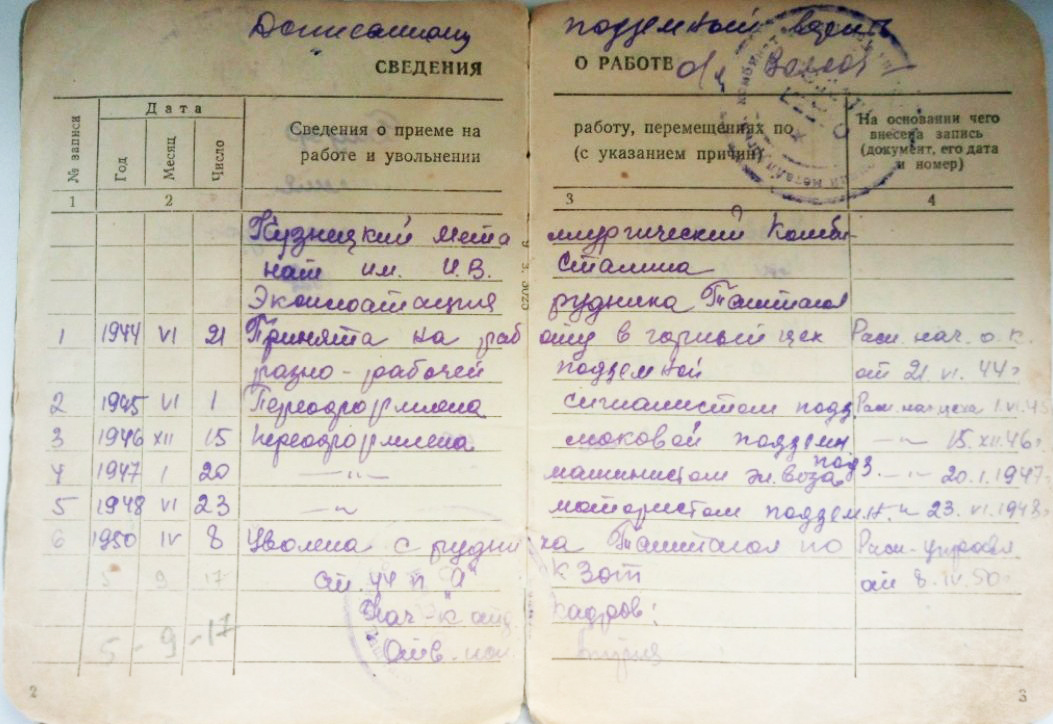 Дописанному подземный верить
СВЕДЕНИЯ О РАБОТЕ
№ записи
Дата
Год
Месяц
Число
Сведения о приеме на работу, перемещениях по
работе и увольнении (с указанием причин)
На основании чего
внесена запись
(документ, его дата
и номер)
1 2 3 4
Кузнецкий метал лургический Комби-
нат им. И.В. Сталина
Эксплоатация рудника Таштагол
1 1944 VI 21 Принята на раб оту в горный цех Расп. нач. о.к.
разно-рабочей подземной от 21.VI.44г
2 1945 VI 1 Переоформлена сигналистом подз. Расп. нач цеха 1.VI.45
3 1946 XII 15 Переоформлена люковой подземн —"— 15.XII.46г
4 1947 I 20 —"— машинистом эл.воза подз. —"— 20.1.1947г
5 1948 VI 23 —"— мотористом подзем. Н. " 23.VI.1948г
6 1950 IV 8 Уволена с рудни ка Таштагол по Расп. управл
ст. 47 п "А" КЗОТ от 8.IV.50г
5 9 17
Нач-к отд. Кадров:
5-9-17
2
3